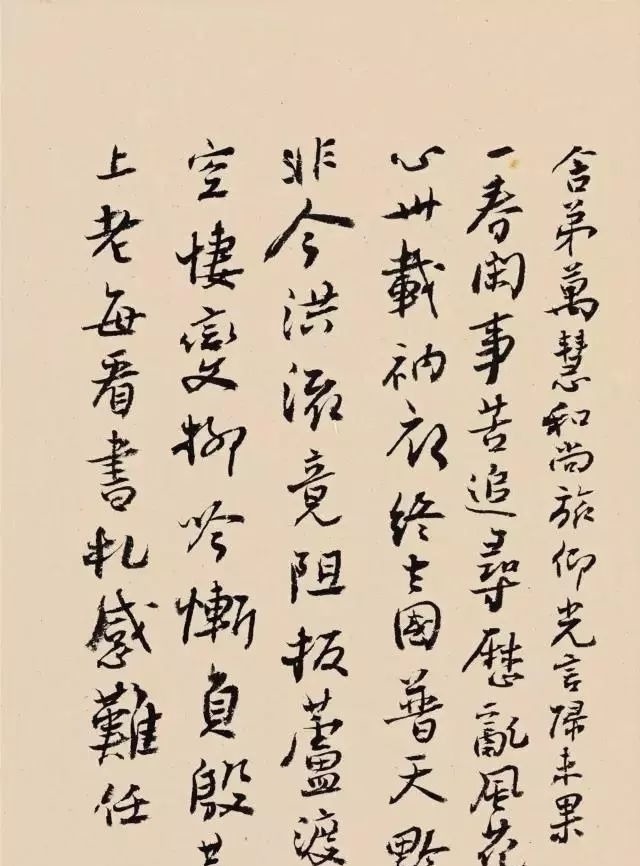 舍弟萬慧和尚旅仰光言歸未果
一春閑事苦追尋歷亂風花
心卅載衲衣終去國普天黔
非今洪流竟阻折蘆渡
空悽變柳吟慚負殷
上老每看書札感難任